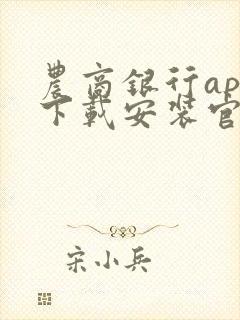 農商銀行ap
下載安装官
宋小兵